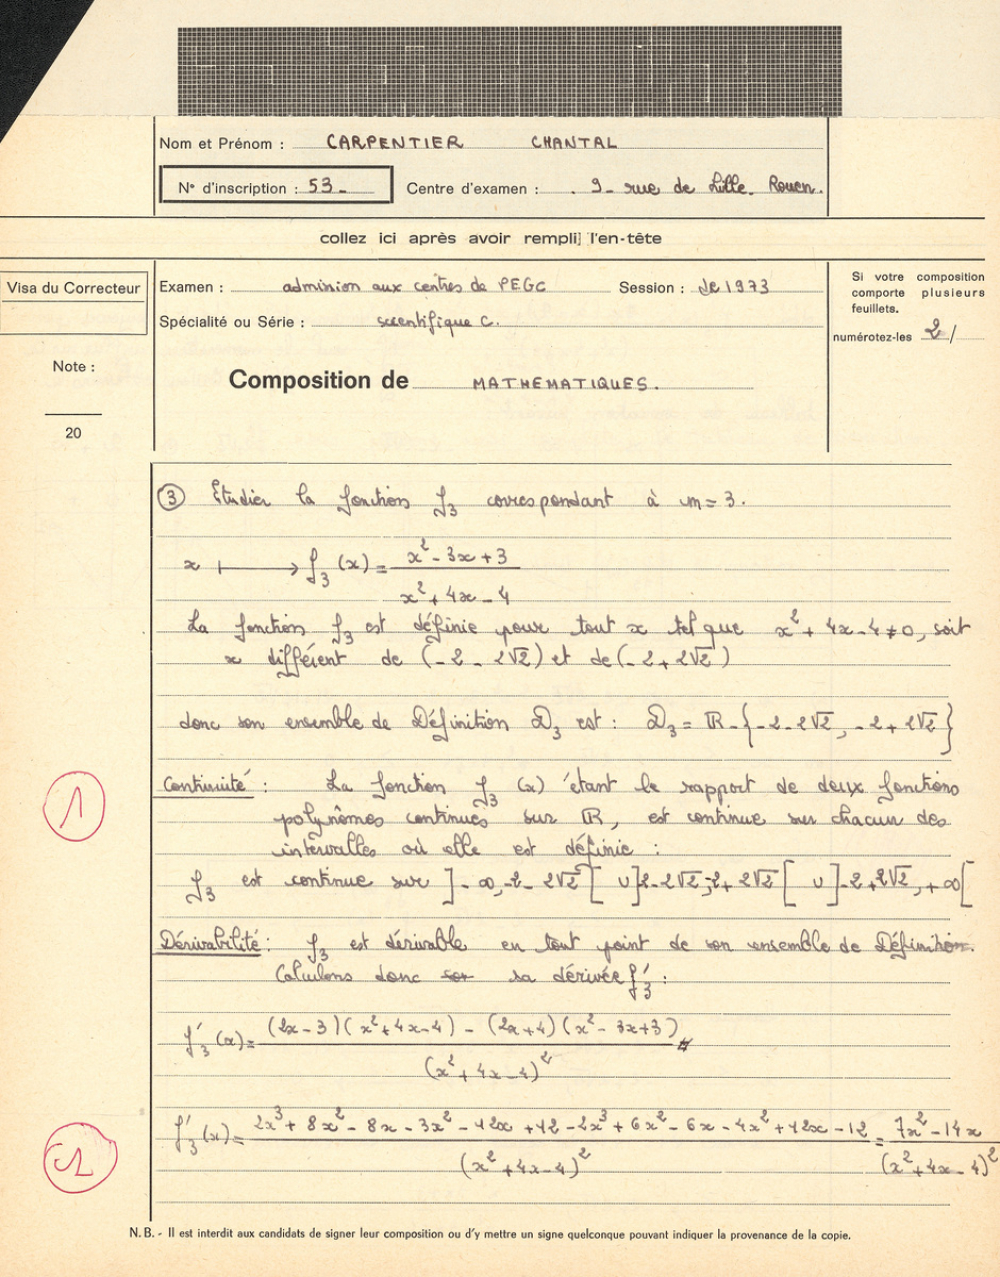 Nom et Prénom : CARPENTIER CHANTAL
N° d'inscription : 53_ Centre d'examen : 9_ rue de Lille. Rouen.
collez ici après avoir rempli l'en-tête
Visa du Correcteur
Examen : admission aux centres de PEGC Session : de 1973
Spécialité ou Série : scientifique C.
Si votre composition comporte plusieurs feuillets.
numérotez-les 2/
Note :
20
Composition de MATHEMATIQUES.
③ Etudier la fonction f₃ correspondant à m = 3.
x ⟼ f₃ (x) = (x² - 3x + 3) / (x² + 4x - 4)
La fonction f₃ est définie pour tout x tel que x² + 4x - 4 ≠ 0, soit
x différent de (-2 - 2√2) et de (-2 + 2√2)
donc son ensemble de Définition D₃ est : D₃ = ℝ - {-2 - 2√2, -2 + 2√2}
Continuité : La fonction f₃ (x) étant le rapport de deux fonctions
1
polynômes continues sur ℝ, est continue sur chacun des
intervalles où elle est définie :
f₃ est continue sur ]-∞, -2 - 2√2[ ∪ ]-2 - 2√2, -2 + 2√2[ ∪ ]-2 + 2√2, +∞[
Dérivabilité : f₃ est dérivable en tout point de son ensemble de Définition.
Calculons donc sa dérivée f'₃ :
f'₃ (x) = ((2x - 3)(x² + 4x - 4) - (2x + 4)(x² - 3x + 3)) / (x² + 4x - 4)²
f'₃ (x) = (2x³ + 8x² - 8x - 3x² - 12x + 12 - 2x³ + 6x² - 6x - 4x² + 12x - 12) / (x² + 4x - 4)² = (7x² - 14x) / (x² + 4x - 4)²
N. B. - Il est interdit aux candidats de signer leur composition ou d'y mettre un signe quelconque pouvant indiquer la provenance de la copie.